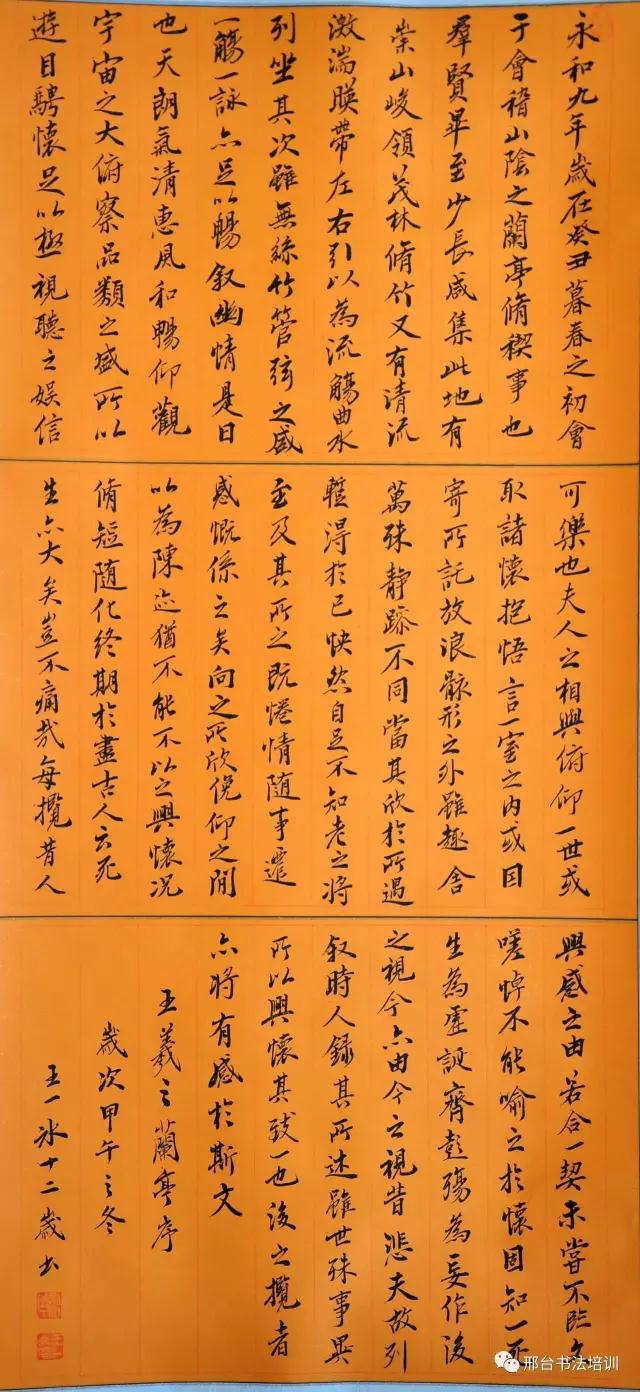 永和九年歲在癸丑暮春之初會
于會稽山陰之蘭亭脩禊事也
羣賢畢至少長咸集此地有
崇山峻領茂林脩竹又有清流
激湍暎帶左右引以為流觴曲水
列坐其次雖無絲竹管弦之盛
一觴一詠亦足以暢叙幽情是日
也天朗氣清惠風和暢仰觀
宇宙之大俯察品類之盛所以
遊目騁懷足以極視聽之娱信
可樂也夫人之相與俯仰一世或
取諸懷抱悟言一室之内或因
寄所託放浪骸形之外雖趣舍
萬殊静躁不同當其欣於所遇
蹔得於己快然自足不知老之將
至及其所之既惓情隨事遷
感慨係之矣向之所欣俛仰之間
以為陳迹猶不能不以之興懷況
脩短隨化終期於盡古人云死
生亦大矣豈不痛哉每攬昔人
興感之由若合一契未嘗不臨文
嗟悼不能喻之於懷固知一死
生為虛誕齊彭殤為妄作後
之視今亦由今之視昔悲夫故列
叙時人録其所述雖世殊事異
所以興懷其致一也後之攬者
亦將有感於斯文
王羲之蘭亭序
歲次甲午之冬
王一冰十二歲書
邢台书法培训